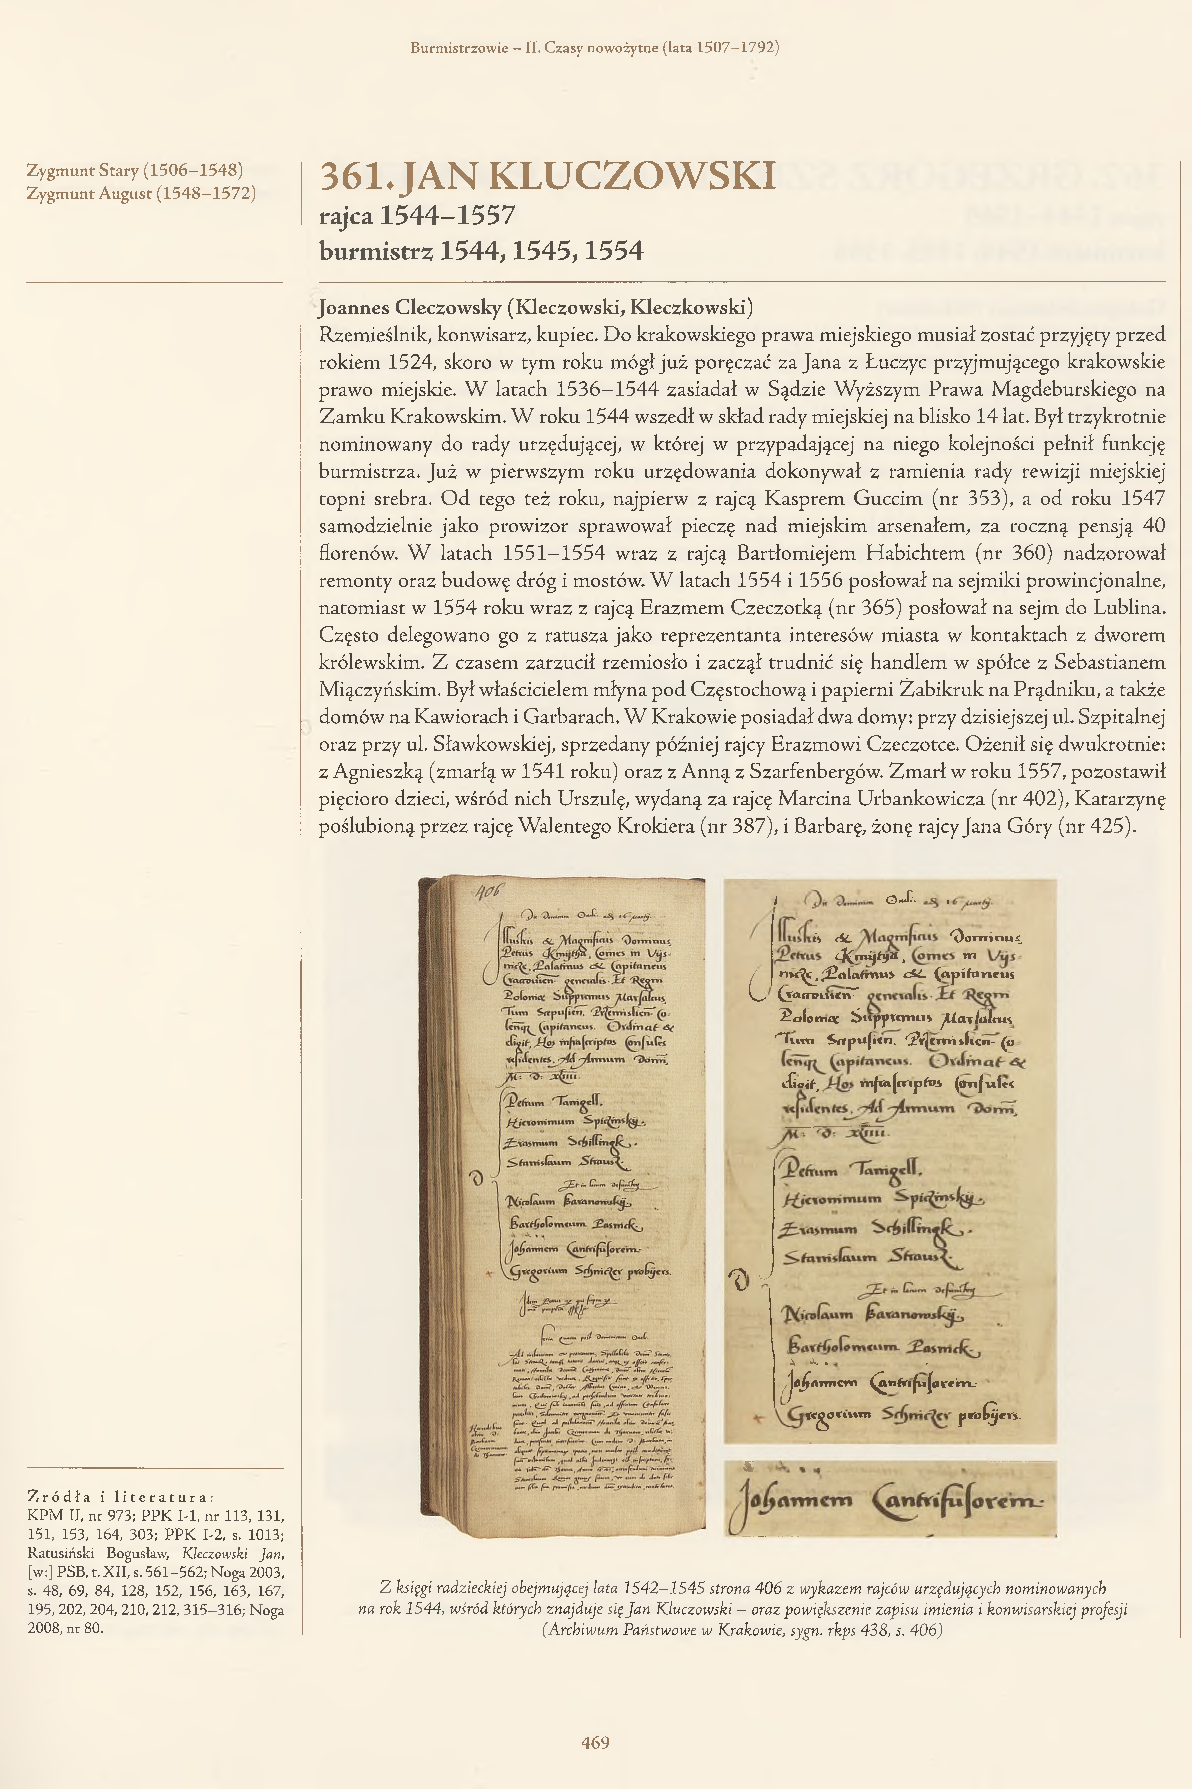 Burmistrzowie – II. Czasy nowożytne (lata 1507–1792)
Zygmunt Stary (1506–1548)
Zygmunt August (1548–1572)
361. JAN KLUCZOWSKI
rajca 1544–1557
burmistrz 1544, 1545, 1554
Joannes Cleczowsky (Kleczowski, Kleczkowski)
Rzemieślnik, konwisarz, kupiec. Do krakowskiego prawa miejskiego musiał zostać przyjęty przed
rokiem 1524, skoro w tym roku mógł już poręczać za Jana z Łuczyc przyjmującego krakowskie
prawo miejskie. W latach 1536–1544 zasiadał w Sądzie Wyższym Prawa Magdeburskiego na
Zamku Krakowskim. W roku 1544 wszedł w skład rady miejskiej na blisko 14 lat. Był trzykrotnie
nominowany do rady urzędującej, w której w przypadającej na niego kolejności pełnił funkcję
burmistrza. Już w pierwszym roku urzędowania dokonywał z ramienia rady rewizji miejskiej
topni srebra. Od tego też roku, najpierw z rajcą Kasprem Guccim (nr 353), a od roku 1547
samodzielnie jako prowizor sprawował pieczę nad miejskim arsenałem, za roczną pensją 40
florenów. W latach 1551–1554 wraz z rajcą Bartłomiejem Habichtem (nr 360) nadzorował
remonty oraz budowę dróg i mostów. W latach 1554 i 1556 posłował na sejmiki prowincjonalne,
natomiast w 1554 roku wraz z rajcą Erazmem Czeczotką (nr 365) posłował na sejm do Lublina.
Często delegowano go z ratusza jako reprezentanta interesów miasta w kontaktach z dworem
królewskim. Z czasem zarzucił rzemiosło i zaczął trudnić się handlem w spółce z Sebastianem
Miączyńskim. Był właścicielem młyna pod Częstochową i papierni Żabikruk na Prądniku, a także
domów na Kawiorach i Garbarach. W Krakowie posiadał dwa domy: przy dzisiejszej ul. Szpitalnej
oraz przy ul. Sławkowskiej, sprzedany później rajcy Erazmowi Czeczotce. Ożenił się dwukrotnie:
z Agnieszką (zmarłą w 1541 roku) oraz z Anną z Szarfenbergów. Zmarł w roku 1557, pozostawił
pięcioro dzieci, wśród nich Urszulę, wydaną za rajcę Marcina Urbankowicza (nr 402), Katarzynę
poślubioną przez rajcę Walentego Krokiera (nr 387), i Barbarę, żonę rajcy Jana Góry (nr 425).
406
Illustris & Magnificus Dominus
Petrus Kmijtha, Comes in Vijs
Palatinus & Capitaneus
generalis. Et Regni
Poloniae Suppremus Marsalcus
Capitaneus. Ordinat &
infrascriptos Consules
residentes. Ad Annum Domi
Petrum Tamgell.
Hieronimum Spiczinskij.
Erasmum Schillingk.
Stanislaum Strausz.
Nicolaum Baranowskij
Bartholomeum Pasmek
Johannem Cantrifusorem
Gregorium Schniczer probijers.
Illustris & Magnificus Dominus
Petrus Kmijtha, Comes in Vijs
Palatinus & Capitaneus
generalis. Et Regni
Poloniae Suppremus Marsalcus
Capitaneus. Ordinat &
infrascriptos Consules
residentes. Ad Annum Domi
Petrum Tamgell.
Hieronimum Spiczinskij.
Erasmum Schillingk.
Stanislaum Strausz.
Nicolaum Baranowskij
Bartholomeum Pasmek
Johannem Cantrifusorem
Gregorium Schniczer probijers.
Johannem Cantrifusorem
Źródła i literatura:
KPM II, nr 973; PPK I-1, nr 113, 131,
151, 153, 164, 303; PPK I-2, s. 1013;
Ratusiński Bogusław, Kleczowski Jan,
[w:] PSB, t. XII, s. 561–562; Noga 2003,
s. 48, 69, 84, 128, 152, 156, 163, 167,
195, 202, 204, 210, 212, 315–316; Noga
2008, nr 80.
Z księgi radzieckiej obejmującej lata 1542–1545 strona 406 z wykazem rajców urzędujących nominowanych
na rok 1544, wśród których znajduje się Jan Kluczowski – oraz powiększenie zapisu imienia i konwisarskiej profesji
(Archiwum Państwowe w Krakowie, sygn. rkps 438, s. 406)
469